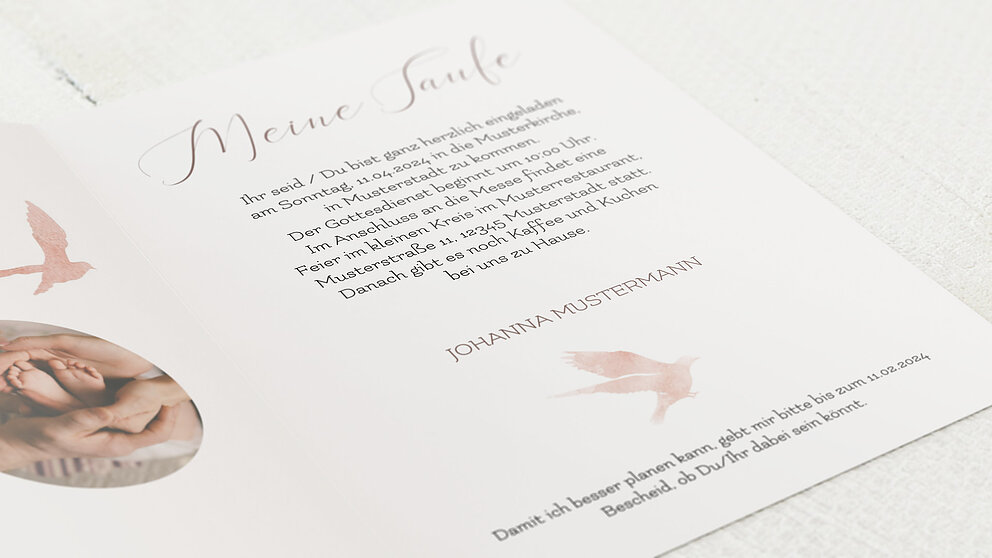 Meine Taufe
Ihr seid / Du bist ganz herzlich eingeladen
am Sonntag, 11.04.2024 in die Musterkirche,
in Musterstadt zu kommen.
Der Gottesdienst beginnt um 10:00 Uhr.
Im Anschluss an die Messe findet eine
Feier im kleinen Kreis im Musterrestaurant,
Musterstraße 11, 12345 Musterstadt statt.
Danach gibt es noch Kaffee und Kuchen
bei uns zu Hause.
JOHANNA MUSTERMANN
Damit ich besser planen kann, gebt mir bitte bis zum 11.02.2024
Bescheid, ob Du/Ihr dabei sein könnt.